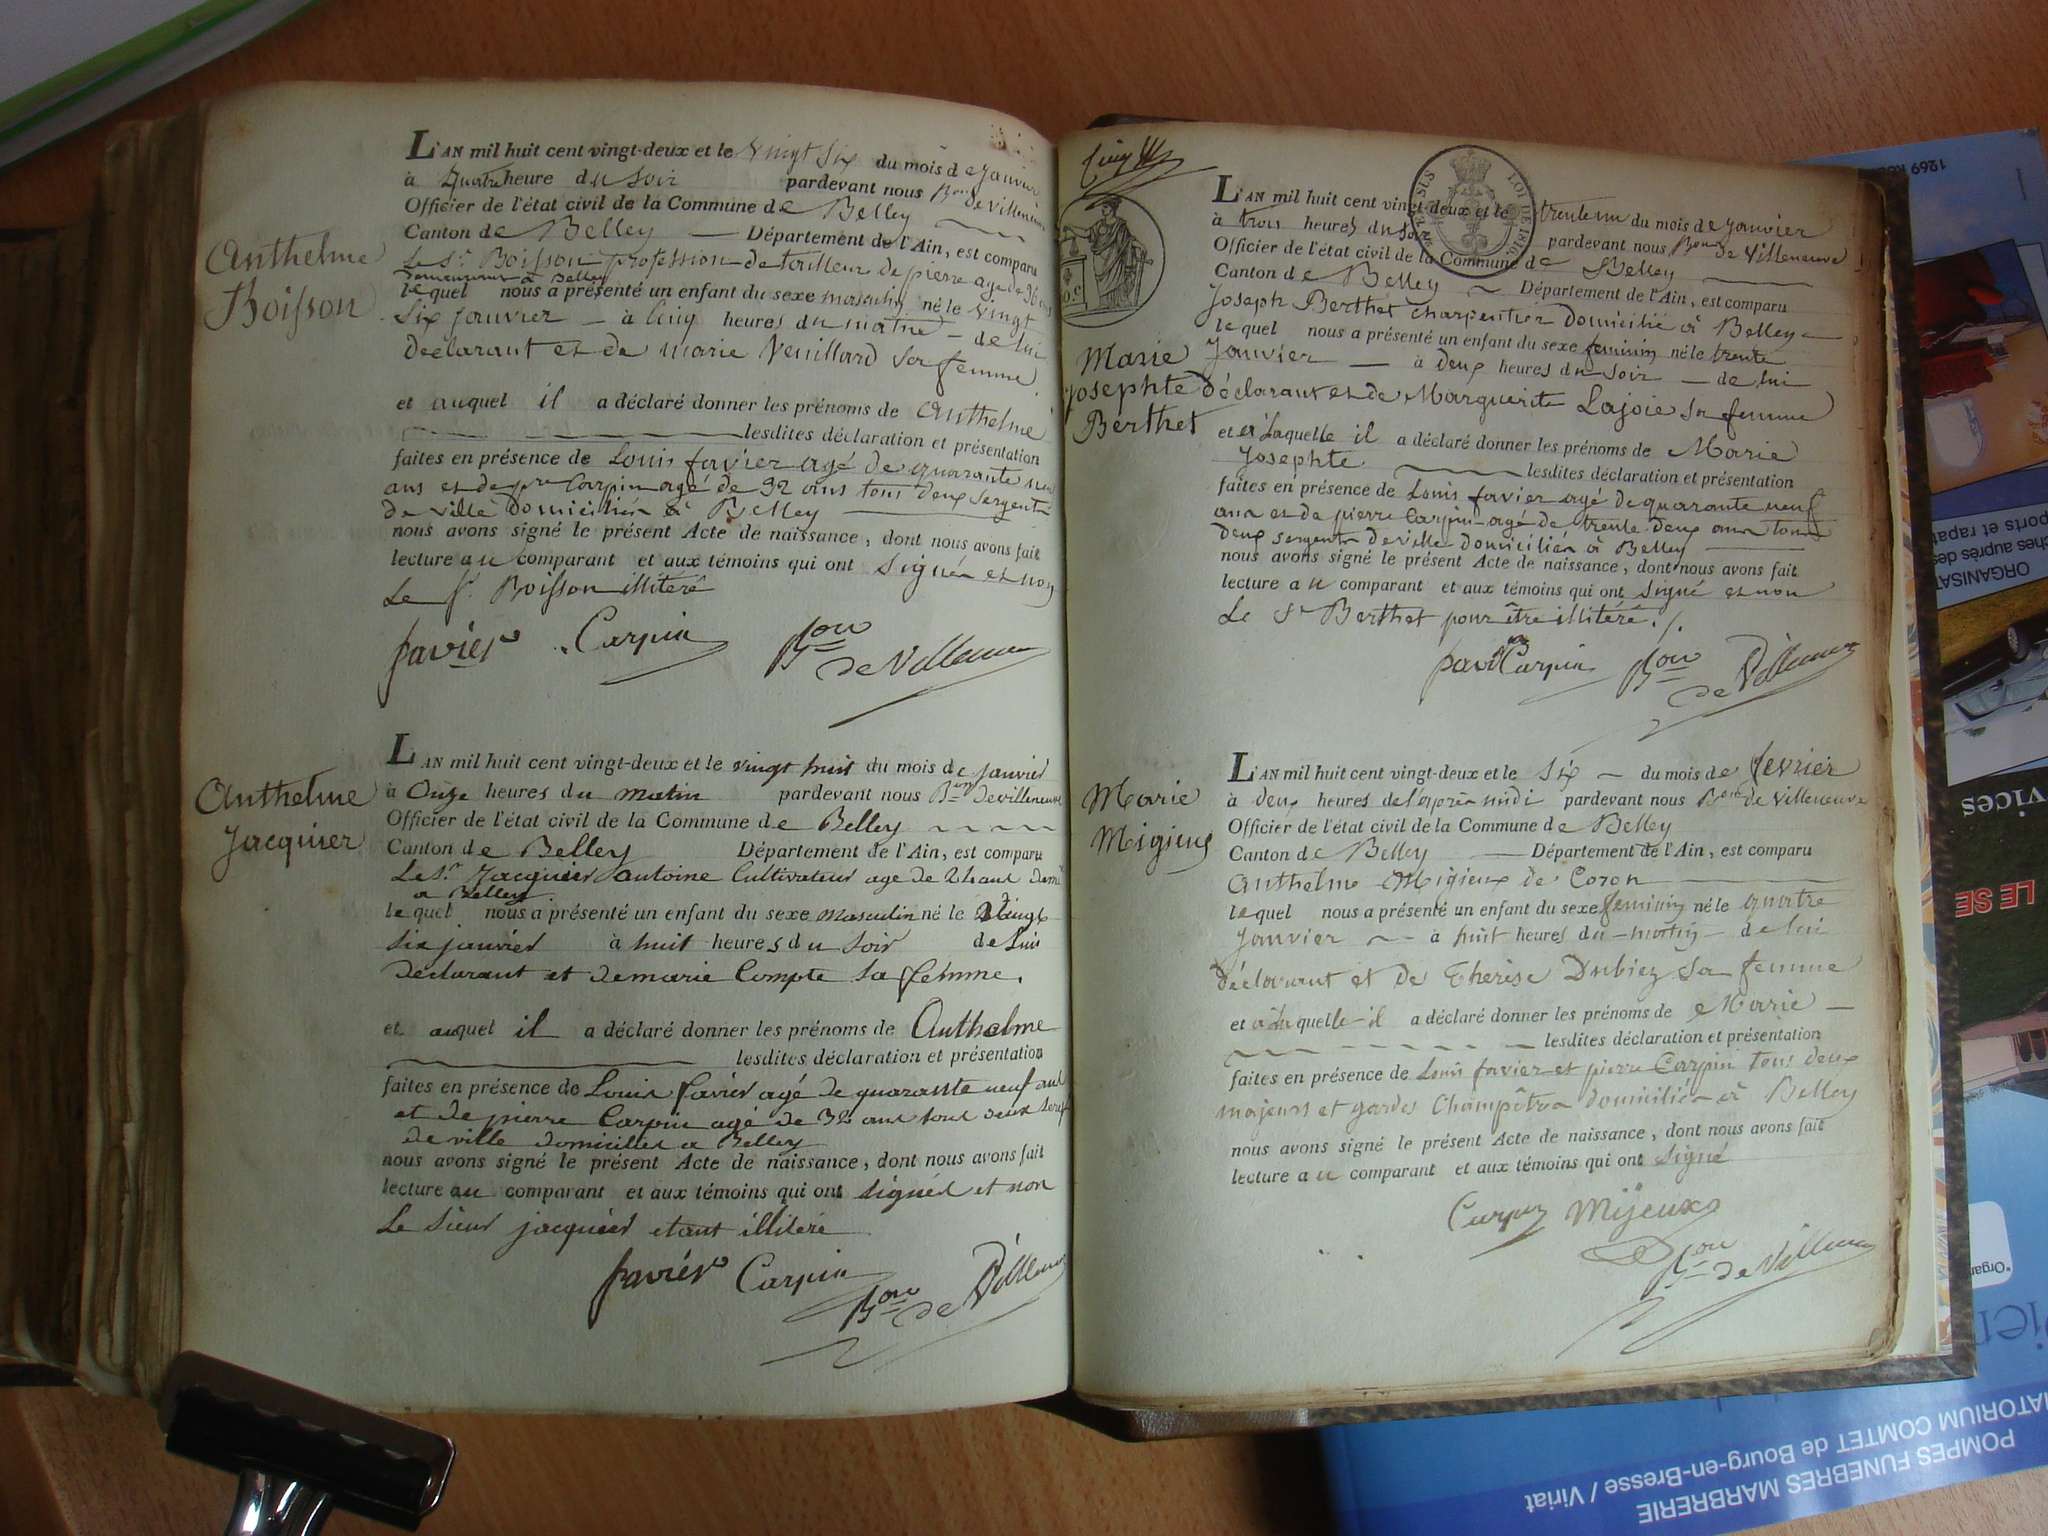 Anthelme
Boisson
L'AN mil huit cent vingt-deux et le vingt six du mois de janvier
à quatre heure du soir pardevant nous Bon de Villeneuve
Officier de l'état civil de la Commune de Belley
Canton de Belley Département de l'Ain, est comparu
Le Sr. Boisson profession de tailleur de pierre age de 36 ans
demeurant à Belley
lequel nous a présenté un enfant du sexe masculin né le vingt
six janvier à cinq heures du matin de lui
déclarant et de marie Venillard sa femme
et auquel il a déclaré donner les prénoms de Anthelme
lesdites déclaration et présentation
faites en présence de Louis favier agé de quarante neuf
ans et de pre Carpin agé de 32 ans tous deux sergents
de ville domiciliés à Belley
nous avons signé le présent Acte de naissance, dont nous avons fait
lecture au comparant et aux témoins qui ont signés et non
Le Sr Boisson illitéré
favier Carpin Bon
de Villeneuve
Anthelme
Jacquier
L'AN mil huit cent vingt-deux et le vingt huit du mois de janvier
à Onze heures du matin pardevant nous Bon de villeneuve
Officier de l'état civil de la Commune de Belley
Canton de Belley Département de l'Ain, est comparu
Le Sr. Jacquier antoine Cultivateur age de
a Belley
lequel nous a présenté un enfant du sexe masculin né le vingt
six janvier à huit heures du soir de lui
declarant et de marie Compte sa femme.
et auquel il a déclaré donner les prénoms de Anthelme
lesdites déclaration et présentation
faites en présence de Louis favier agé de quarante neuf ans
et de pierre Carpin agé de 32 ans tous deux
de ville domiciliés a Belley
nous avons signé le présent Acte de naissance, dont nous avons fait
lecture au comparant et aux témoins qui ont signés et non
Le sieur jacquier etant illitéré
favier Carpin
Bon de Villeneuve
LOI DE 1816
L'AN mil huit cent vingt-deux et le trente un du mois de janvier
à trois heures du soir pardevant nous Bon de Villeneuve
Officier de l'état civil de la Commune de Belley
Canton de Belley Département de l'Ain, est comparu
Joseph Berthet charpentier domicilié à Belley
Marie
Josephte
Berthet
lequel nous a présenté un enfant du sexe feminin né le trente
Janvier à deux heures du soir de lui
déclarant et de Marguerite Lajoie sa femme
et à laquelle il a déclaré donner les prénoms de Marie
Josephte lesdites déclaration et présentation
faites en présence de Louis favier agé de quarante neuf
ans et de pierre Carpin agé de trente deux ans tous
deux sergents de ville domiciliés à Belley
nous avons signé le présent Acte de naissance, dont nous avons fait
lecture au comparant et aux témoins qui ont signé et non
Le Sr Berthet pour être illitéré
favier Carpin Bon
de Villeneuve
Marie
Migieux
L'AN mil huit cent vingt-deux et le six du mois de fevrier
à deux heures de l'après midi pardevant nous Bon de Villeneuve
Officier de l'état civil de la Commune de Belley
Canton de Belley Département de l'Ain, est comparu
Anthelme Migieux de Coron
lequel nous a présenté un enfant du sexe feminin né le quatre
Janvier à huit heures du matin de lui
déclarant et de Therèse Dubiez sa femme
et à laquelle il a déclaré donner les prénoms de Marie
lesdites déclaration et présentation
faites en présence de Louis favier et pierre Carpin tous deux
majeurs et gardes Champêtres domiciliés à Belley
nous avons signé le présent Acte de naissance, dont nous avons fait
lecture au comparant et aux témoins qui ont signé
Carpin Mijeux
Bon de Villeneuve
1269
ports et rapat
ches auprès des
ORGANISAT
VICES
LE SE
*Organ
POMPES FUNEBRES MARBRERIE
ATORIUM COMTET de Bourg-en-Bresse / Viriat